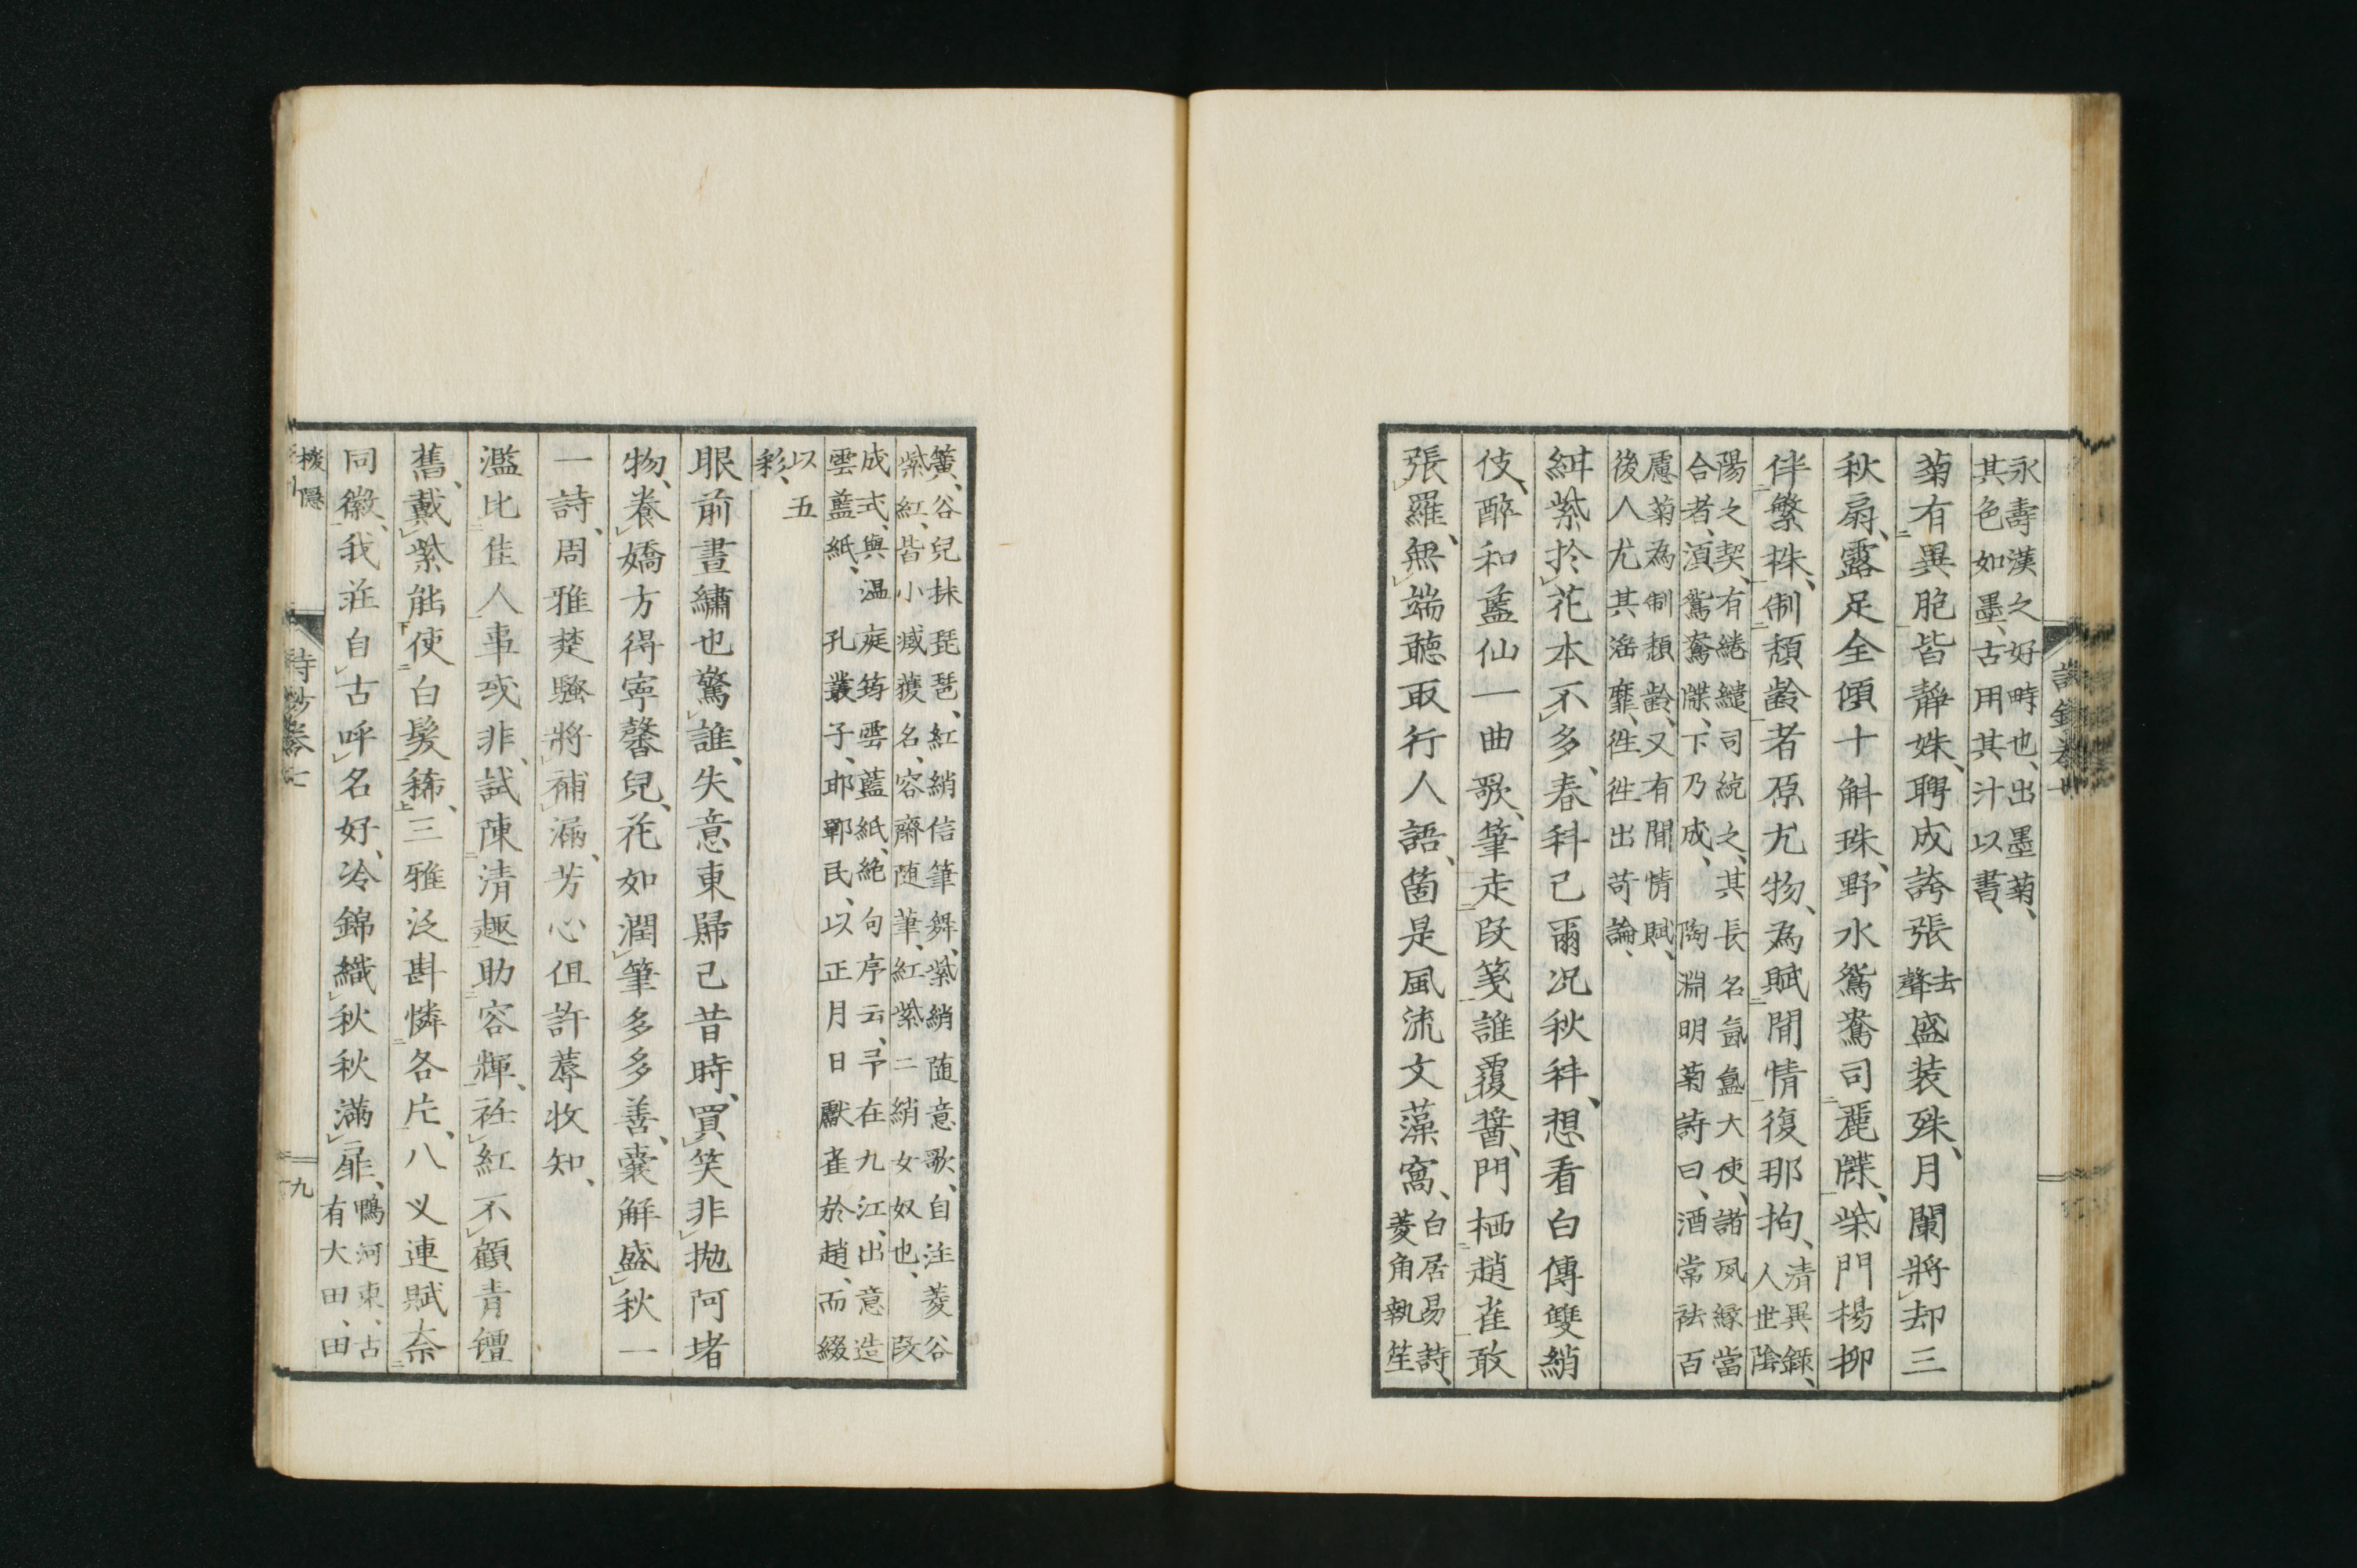 永壽漢之好時也、出墨菊、
其色如墨、古用其汁以書、
菊有異胞皆靜姝、聘成誇張去聲盛装殊、月闌將却三
秋扇、露足全傾十斛珠、野水鴛鴦司麗牒、柴門楊柳
伴繁株、制頽齡者原尤物、為賦閒情復那拘、清異錄、人世陰
陽之契、有綣繾司統之、其長名氤氳大使、諸夙緣當
合者、湏鴛鴦牒、下乃成、陶淵明菊詩曰、酒常祛百
慮菊為制頽齡、又有閒情賦、
後人尤其滛靡、徃徃出苛論、
紏紫扵花本不多、春科己爾况秋科、想看白傳雙綃
伎、醉和孟仙一曲歌、筆走段箋誰覆醬、門栖趙雀敢
張羅、無端聽取行人語、箇是風流文藻窩、白居易詩、菱角執笙
簧、谷兒抹琵琶、紅綃信筆舞、紫綃随意歌、自注菱谷
紫紅、皆小臧獲名、容齋随筆、紅紫二綃女奴也、段
成式、與溫庭筠雲藍紙、絶句序云、予在九江、出意造
雲藍紙、孔叢子、邯鄲民、以正月日獻雀於趙、而綴
以五
彩、
眼前晝繡也驚誰、失意東歸已昔時、買笑非拋阿堵
物、養嬌方得寧馨兒、花如潤筆多多善、囊解盛秋一
一詩、周雅楚騷將補漏、芳心但許蓐收知、
濫比佳人事或非、試陳清趣助容輝、袵紅不顧青氊
舊、戴紫能使白髪稀、三雅泛斟憐各片、八义連賦奈
同徽、我莊自古呼名好、冷錦織秋秋滿扉、鴨河東、古
有大田、田
詩鈔卷七
九